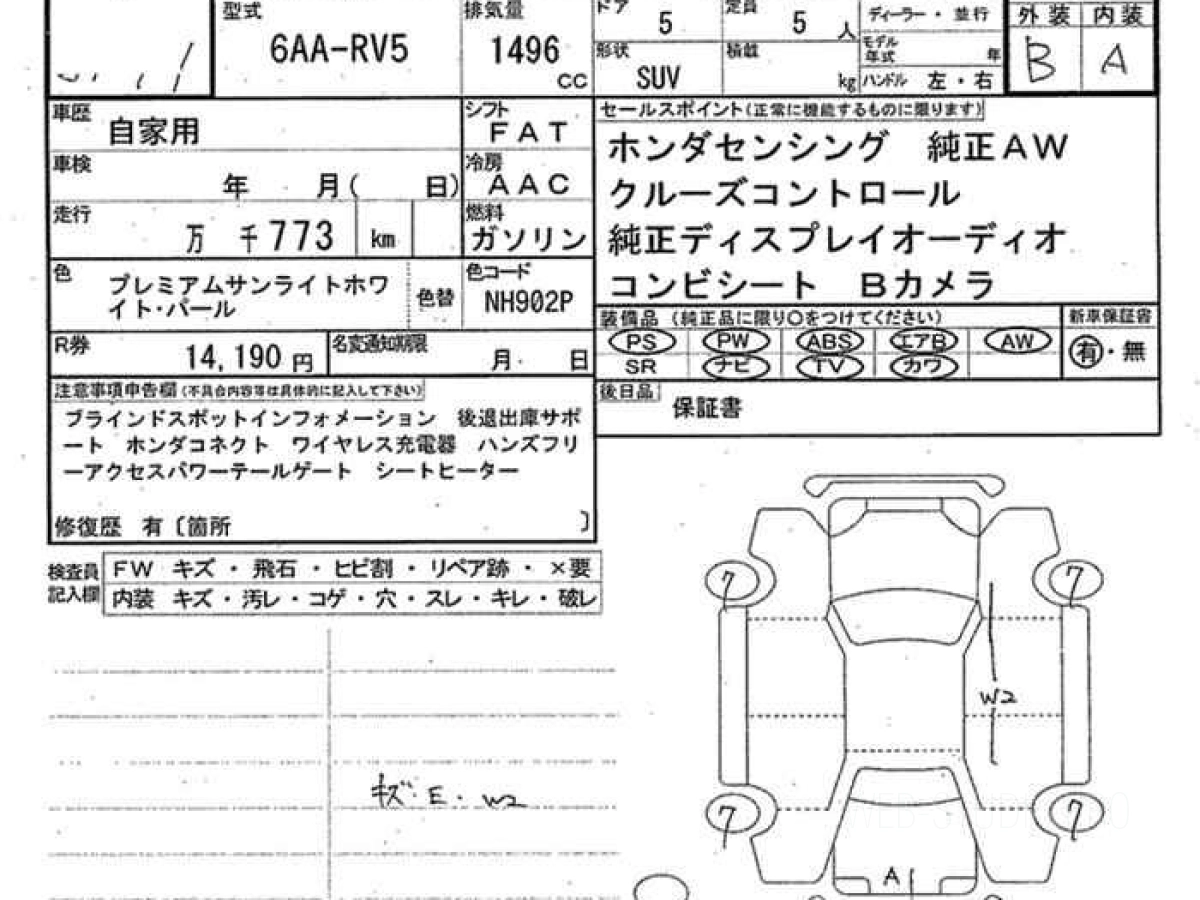 型式 排気量 ドア 5 定員 5 人 ディーラー・並行 外装 内装
6AA-RV5 1496 cc 形状 SUV 積載 kg モデル年式 年 B A
ハンドル 左・右
車歴 自家用 シフト FAT
車検 年 月( 日) 冷房 AAC
走行 万 千773 km 燃料 ガソリン
色 プレミアムサンライトホワ
イト・パール 色替 色コード NH902P
R券 14,190 円 名変通知期限 月 日
セールスポイント(正常に機能するものに限ります)
ホンダセンシング 純正AW
クルーズコントロール
純正ディスプレイオーディオ
コンビシート Bカメラ
装備品 (純正品に限り○をつけてください) 新車保証書
PS PW ABS エアB AW 有・無
SR ナビ TV カワ
後日品 保証書
注意事項申告欄(不具合内容等は具体的に記入して下さい)
ブラインドスポットインフォメーション 後退出庫サポ
ート ホンダコネクト ワイヤレス充電器 ハンズフリ
ーアクセスパワーテールゲート シートヒーター
修復歴 有〔箇所 〕
検査員 FW キズ・飛石・ヒビ割・リペア跡・×要
記入欄 内装 キズ・汚レ・コゲ・穴・スレ・キレ・破レ
7 7
W2
キズ E. W2
7 7
A1